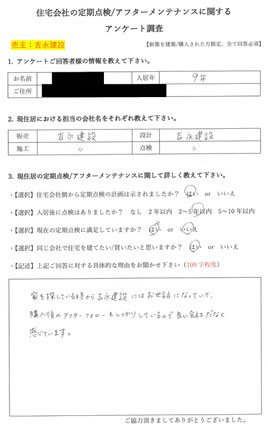 住宅会社の定期点検/アフターメンテナンスに関する
アンケート調査
売主：吉永建設
【新築を建築/購入された方限定、全て回答必須】
1. アンケートご回答者様の情報を教えて下さい。
お名前 入居年 9年
ご住所
2. 現住居における担当の会社名をそれぞれ教えて下さい。
販売 吉永建設 設計 吉永建設
施工 〃 点検 〃
3. 現住居の定期点検/アフターメンテナンスに関して詳しく教えて下さい。
・【選択】住宅会社側から定期点検の計画は示されましたか？ はい or いいえ
・【選択】入居後に点検はありましたか？ なし 2年以内 2～5年以内 5～10年以内
・【選択】現在の定期点検に満足していますか？ はい or いいえ
・【選択】同じ会社で住宅を建てたい/買いたいと思いますか？ はい or いいえ
・【記述】上記ご回答に対する具体的な理由をお聞かせ下さい（100字程度）
家を探している時から吉永建設にはお世話になっていて、
購入後のアフターフォローもしっかりしているので良い会社だなと
感じています。
ご協力頂きましてありがとうございました。